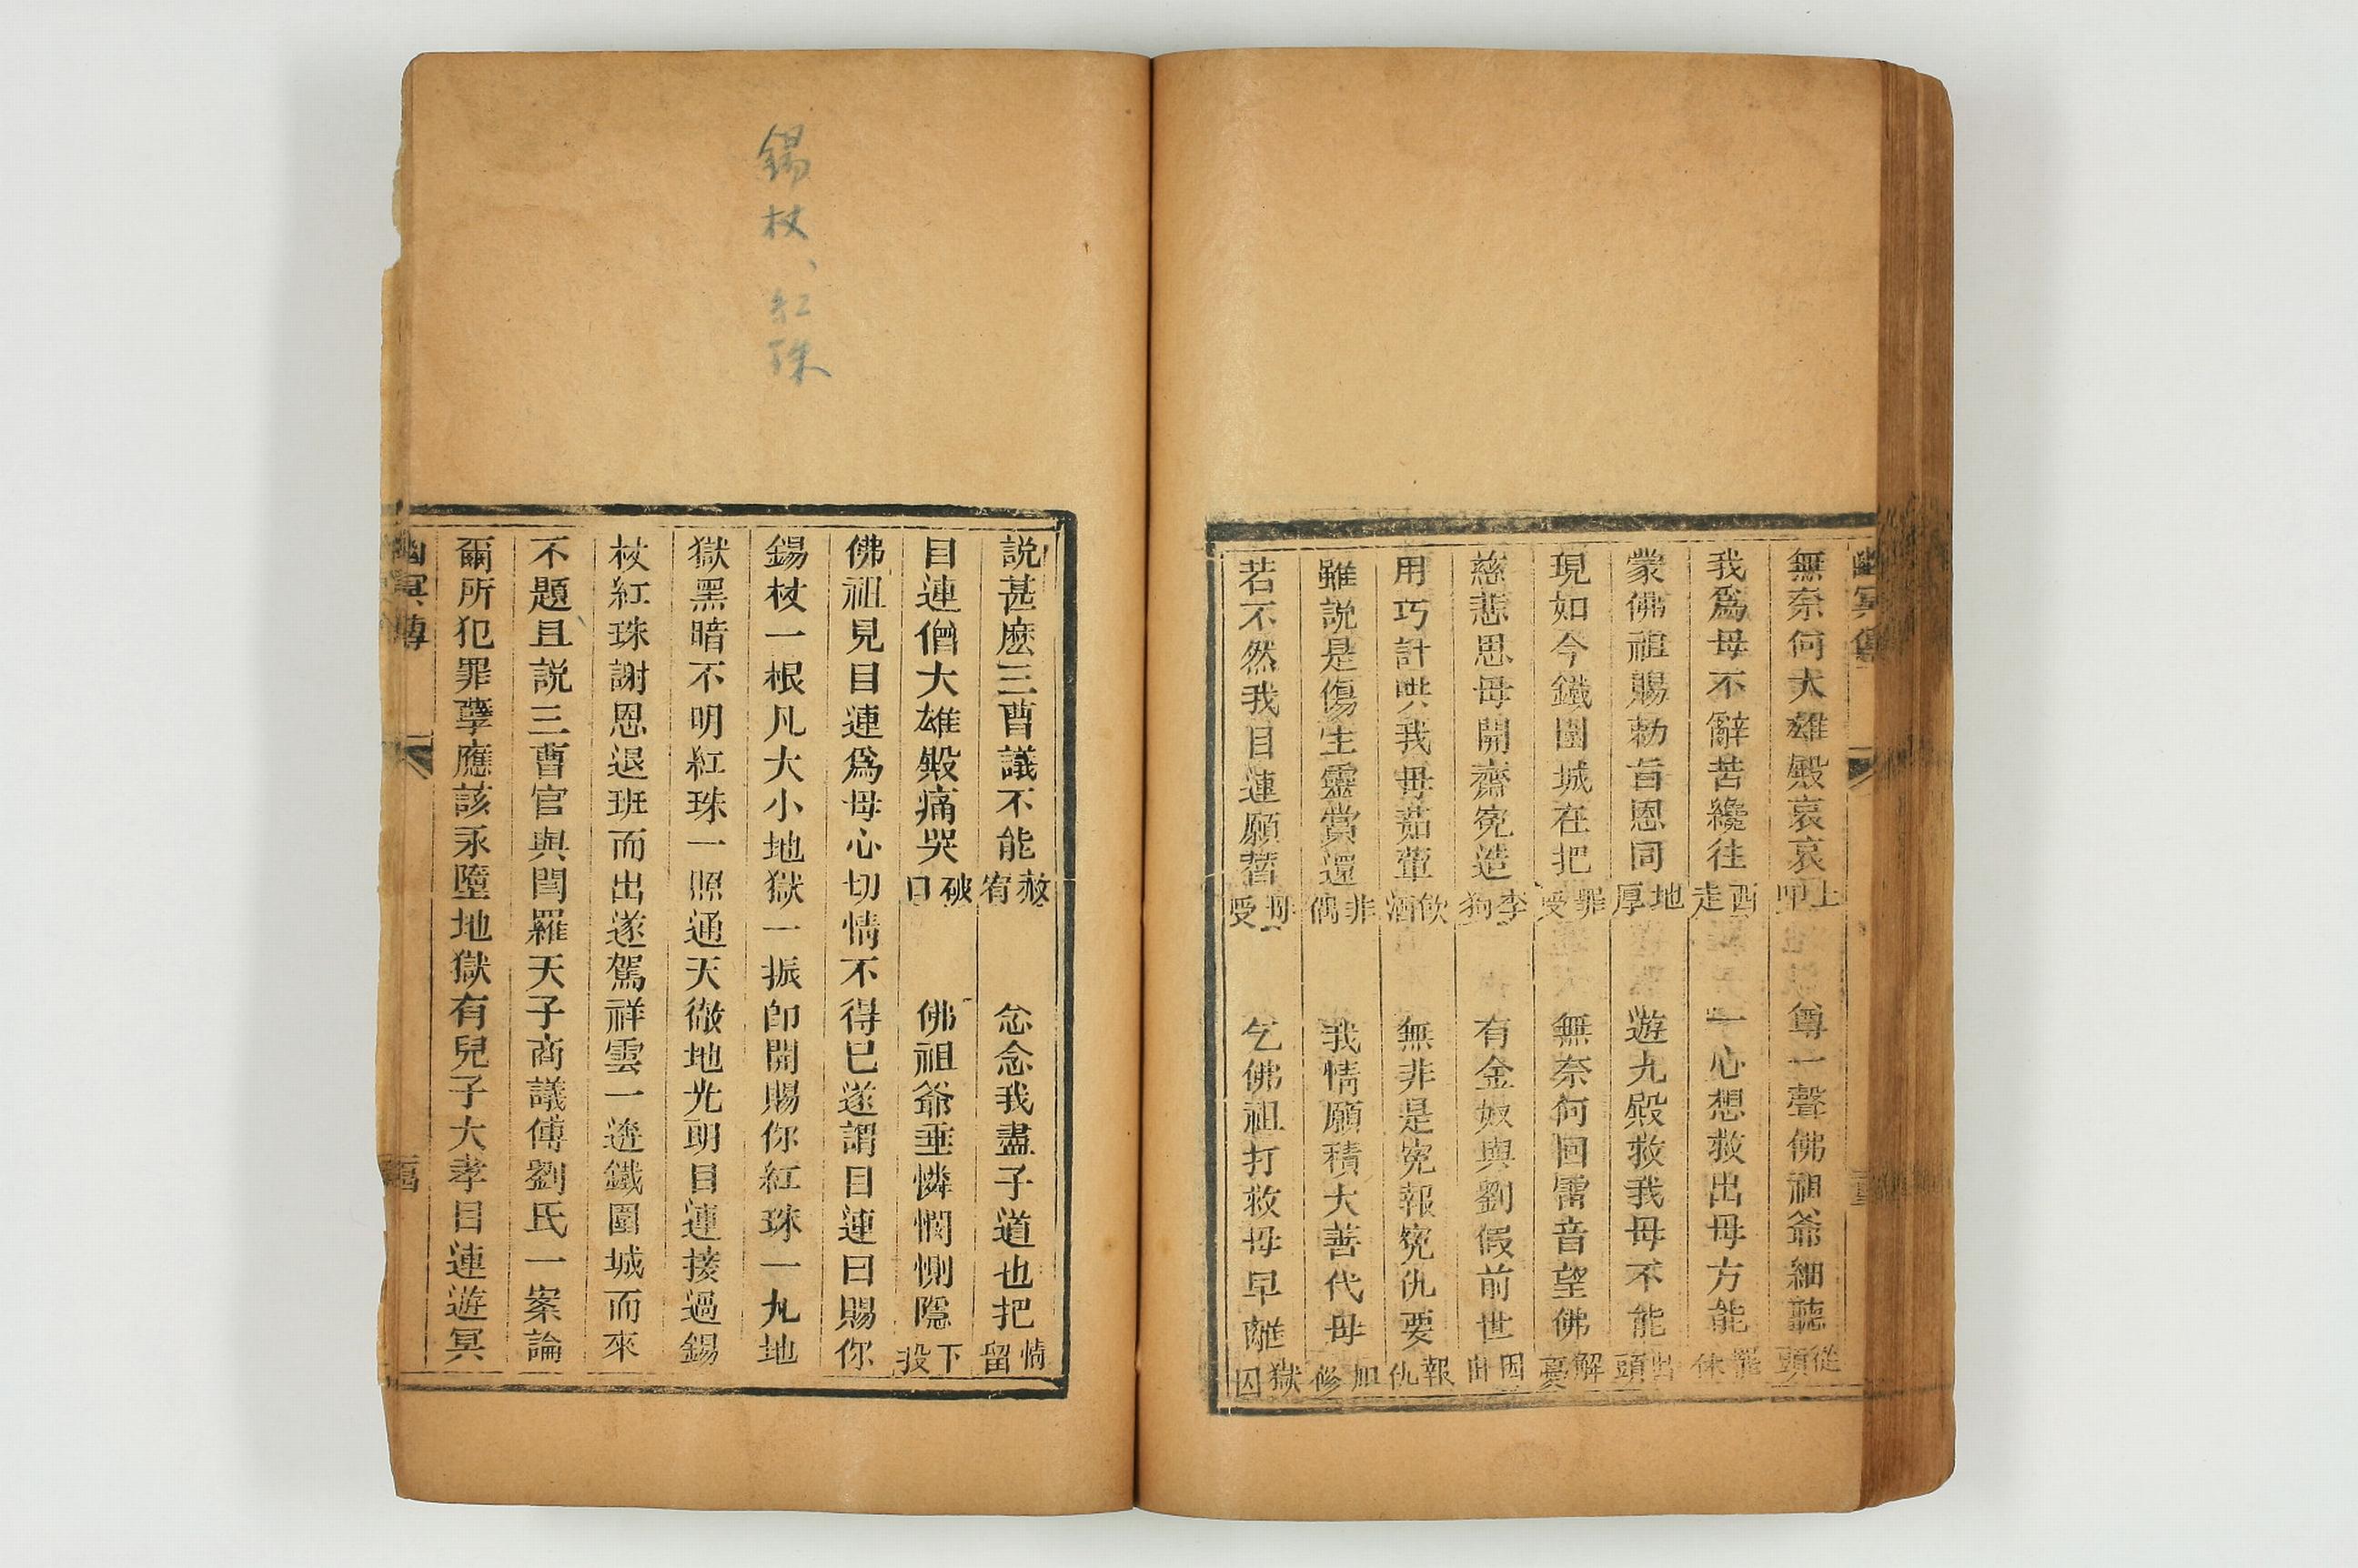 幽冥傳
無奈何大雄殿哀哀上叩 尊一聲佛祖爺細聽從頭
我爲母不辭苦纔往西走 一心想救出母方能罷休
蒙佛祖賜勅旨恩同地厚 遊九殿救我母不能出頭
現如今鐵圍城在把罪受 無奈何回雷音望佛解憂
慈悲恩母開齋寃造李狗 有金奴與劉假前世因由
用巧計哄我母茹葷飲酒 無非是寃報寃仇要報仇
雖説是傷生靈賞還非偶 我情願積大善代母加修
若不然我目連願替母受 乞佛祖打救母早離獄囚
錫杖、紅珠
説甚麽三曹議不能赦宥 念念我盡子道也把情留
目連僧大雄殿痛哭破口 佛祖爺垂憐憫惻隱下投
佛祖見目連爲母心切情不得已遂謂目連曰賜你
錫杖一根凡大小地獄一振卽開賜你紅珠一九地
獄黑暗不明紅珠一照通天徹地光明目連接過錫
杖紅珠謝恩退班而出遂駕祥雲一逩鐵圍城而來
不題且説三曹官與閻羅天子商議傅劉氏一案論
爾所犯罪孽應該永墮地獄有兒子大孝目連遊冥
幽冥傳